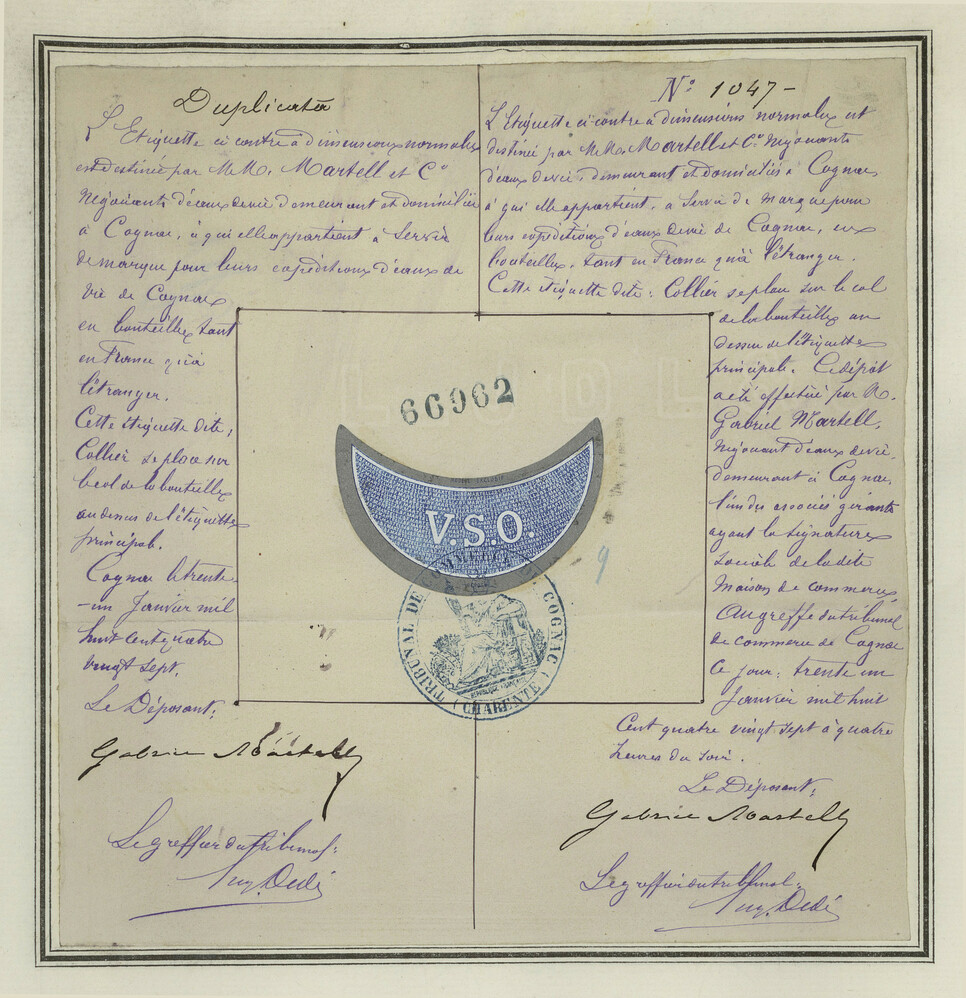 Duplicata
L'Etiquette ci contre à dimensions normales
est destinée par M.M. Martell et Co
Négociants d'eaux de vie demeurant et domiciliés
à Cognac, à qui elle appartient à servir
de marque pour leurs expéditions d'eaux de
vie de Cognac
en bouteilles tant
en France qu'à
l'étranger.
Cette étiquette dite,
Collier se place sur
le col de la bouteille
au dessus de l'étiquette
principale.
Cognac le trente
-un Janvier mil
huit cent quatre
vingt sept.
Le Déposant:
Gabriel Martell
Le greffier du tribunal:
Aug. Dedé
No 1047-
L'Etiquette ci contre à dimensions normales est
destinée par M.M. Martell et Co. Négociants
d'eaux de vie, demeurant et domiciliés à Cognac,
à qui elle appartient, à servir de marque pour
leurs expéditions d'eaux de vie de Cognac, en
bouteilles, tant en France qu'à l'étranger.
Cette étiquette dite: Collier se place sur le col
de la bouteille au
dessus de l'étiquette
principale. Ce dépôt
a été effectué par M.
Gabriel Martell,
Négociant d'eaux de vie,
demeurant à Cognac,
l'un des associés gérants
ayant la signature
sociale de la dite
Maison de commerce,
Au greffe du tribunal
de commerce de Cognac
Ce jour: trente un
Janvier mil huit
Cent quatre vingt sept à quatre
heures du soir.
Le Déposant:
Gabriel Martell
Le greffier du tribunal:
Aug. Dedé
66962
V.S.O.
TRIBUNAL DE COMMERCE COGNAC
(CHARENTE)
9